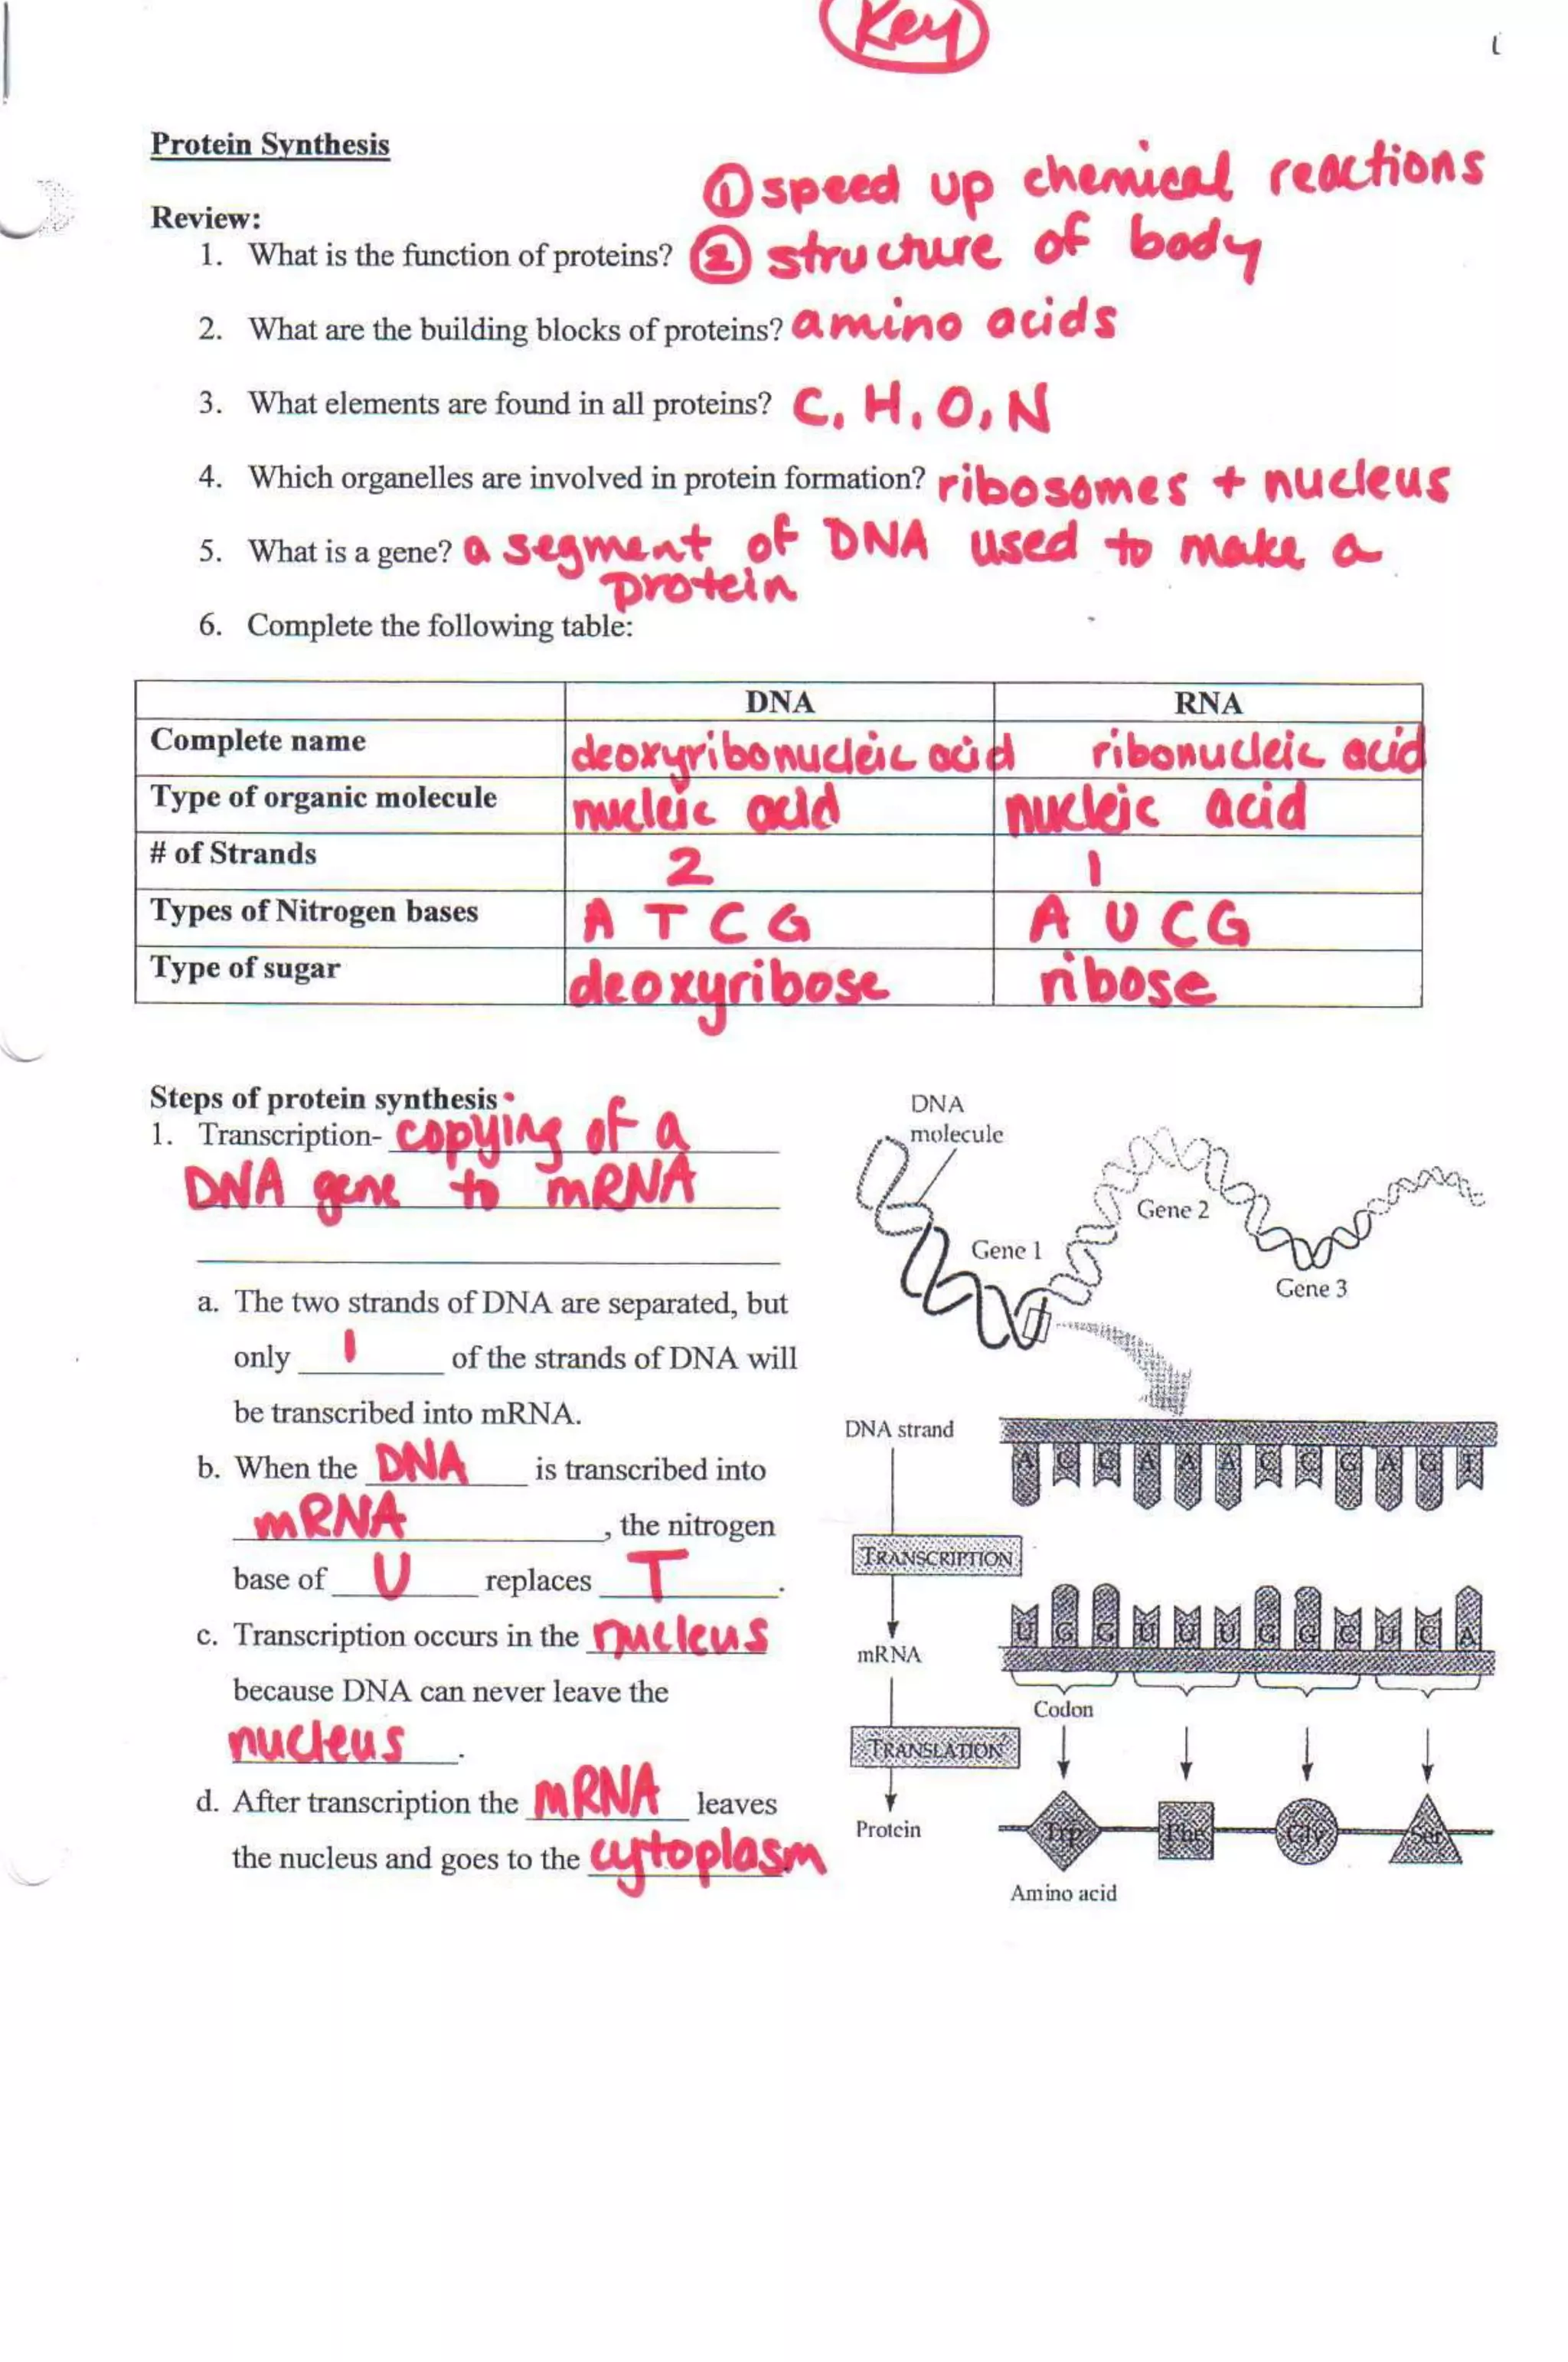 Key
Protein Synthesis
① speed up chemical reactions
Review:
1. What is the function of proteins? ② structure of body
2. What are the building blocks of proteins? amino acids
3. What elements are found in all proteins? C, H, O, N
4. Which organelles are involved in protein formation? ribosomes + nucleus
5. What is a gene? a segment of DNA used to make a
protein
6. Complete the following table:
DNA RNA
Complete name deoxyribonucleic acid ribonucleic acid
Type of organic molecule nucleic acid nucleic acid
# of Strands 2 1
Types of Nitrogen bases A T C G A U C G
Type of sugar deoxyribose ribose
Steps of protein synthesis
1. Transcription- copying of a
DNA gene to mRNA
a. The two strands of DNA are separated, but
only 1 of the strands of DNA will
be transcribed into mRNA.
b. When the DNA is transcribed into
mRNA, the nitrogen
base of U replaces T.
c. Transcription occurs in the nucleus
because DNA can never leave the
nucleus.
d. After transcription the mRNA leaves
the nucleus and goes to the cytoplasm
DNA
molecule
Gene 2
Gene 1
Gene 3
DNA strand
A C C A A A C C G A G T
TRANSCRIPTION
U G G U U U G G C U C A
mRNA
Codon
TRANSLATION
Protein
Trp Phe Gly Ser
Amino acid